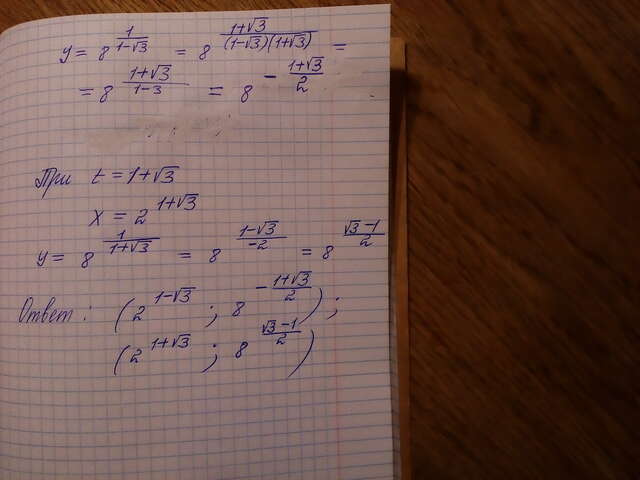 y = 8^(1/(1-√3)) = 8^((1+√3)/((1-√3)(1+√3))) =
= 8^((1+√3)/(1-3)) = 8^(-(1+√3)/2)
При t = 1+√3
x = 2^(1+√3)
y = 8^(1/(1+√3)) = 8^((1-√3)/(-2)) = 8^((√3-1)/2)
Ответ: (2^(1-√3); 8^(-(1+√3)/2));
(2^(1+√3); 8^((√3-1)/2))